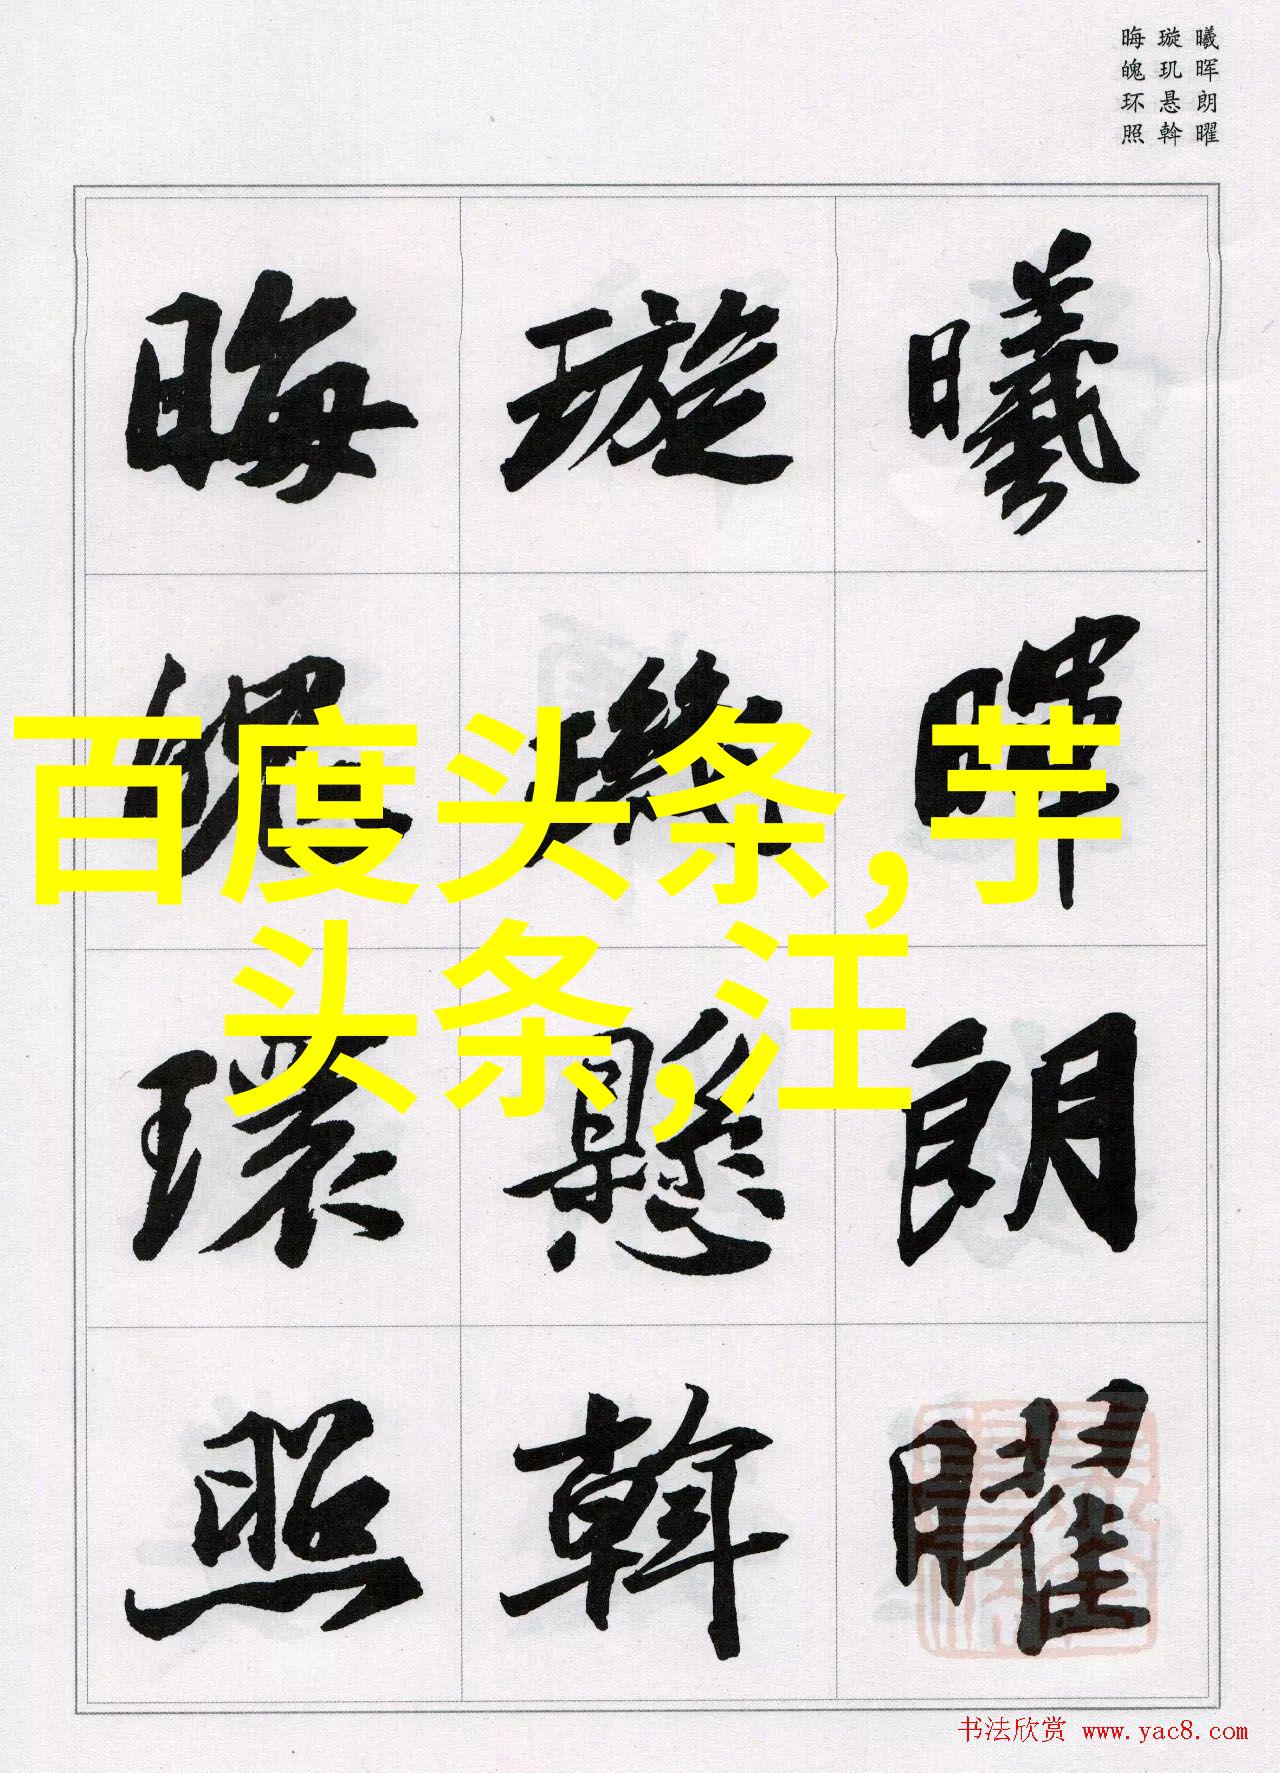 曦晖朗曜
璇玑悬斡
晦魄环照
曦暉朗曜
璇璣懸斡
晦魄環照
百度头条,芋
头条,汪
书法欣赏 www.yac8.com